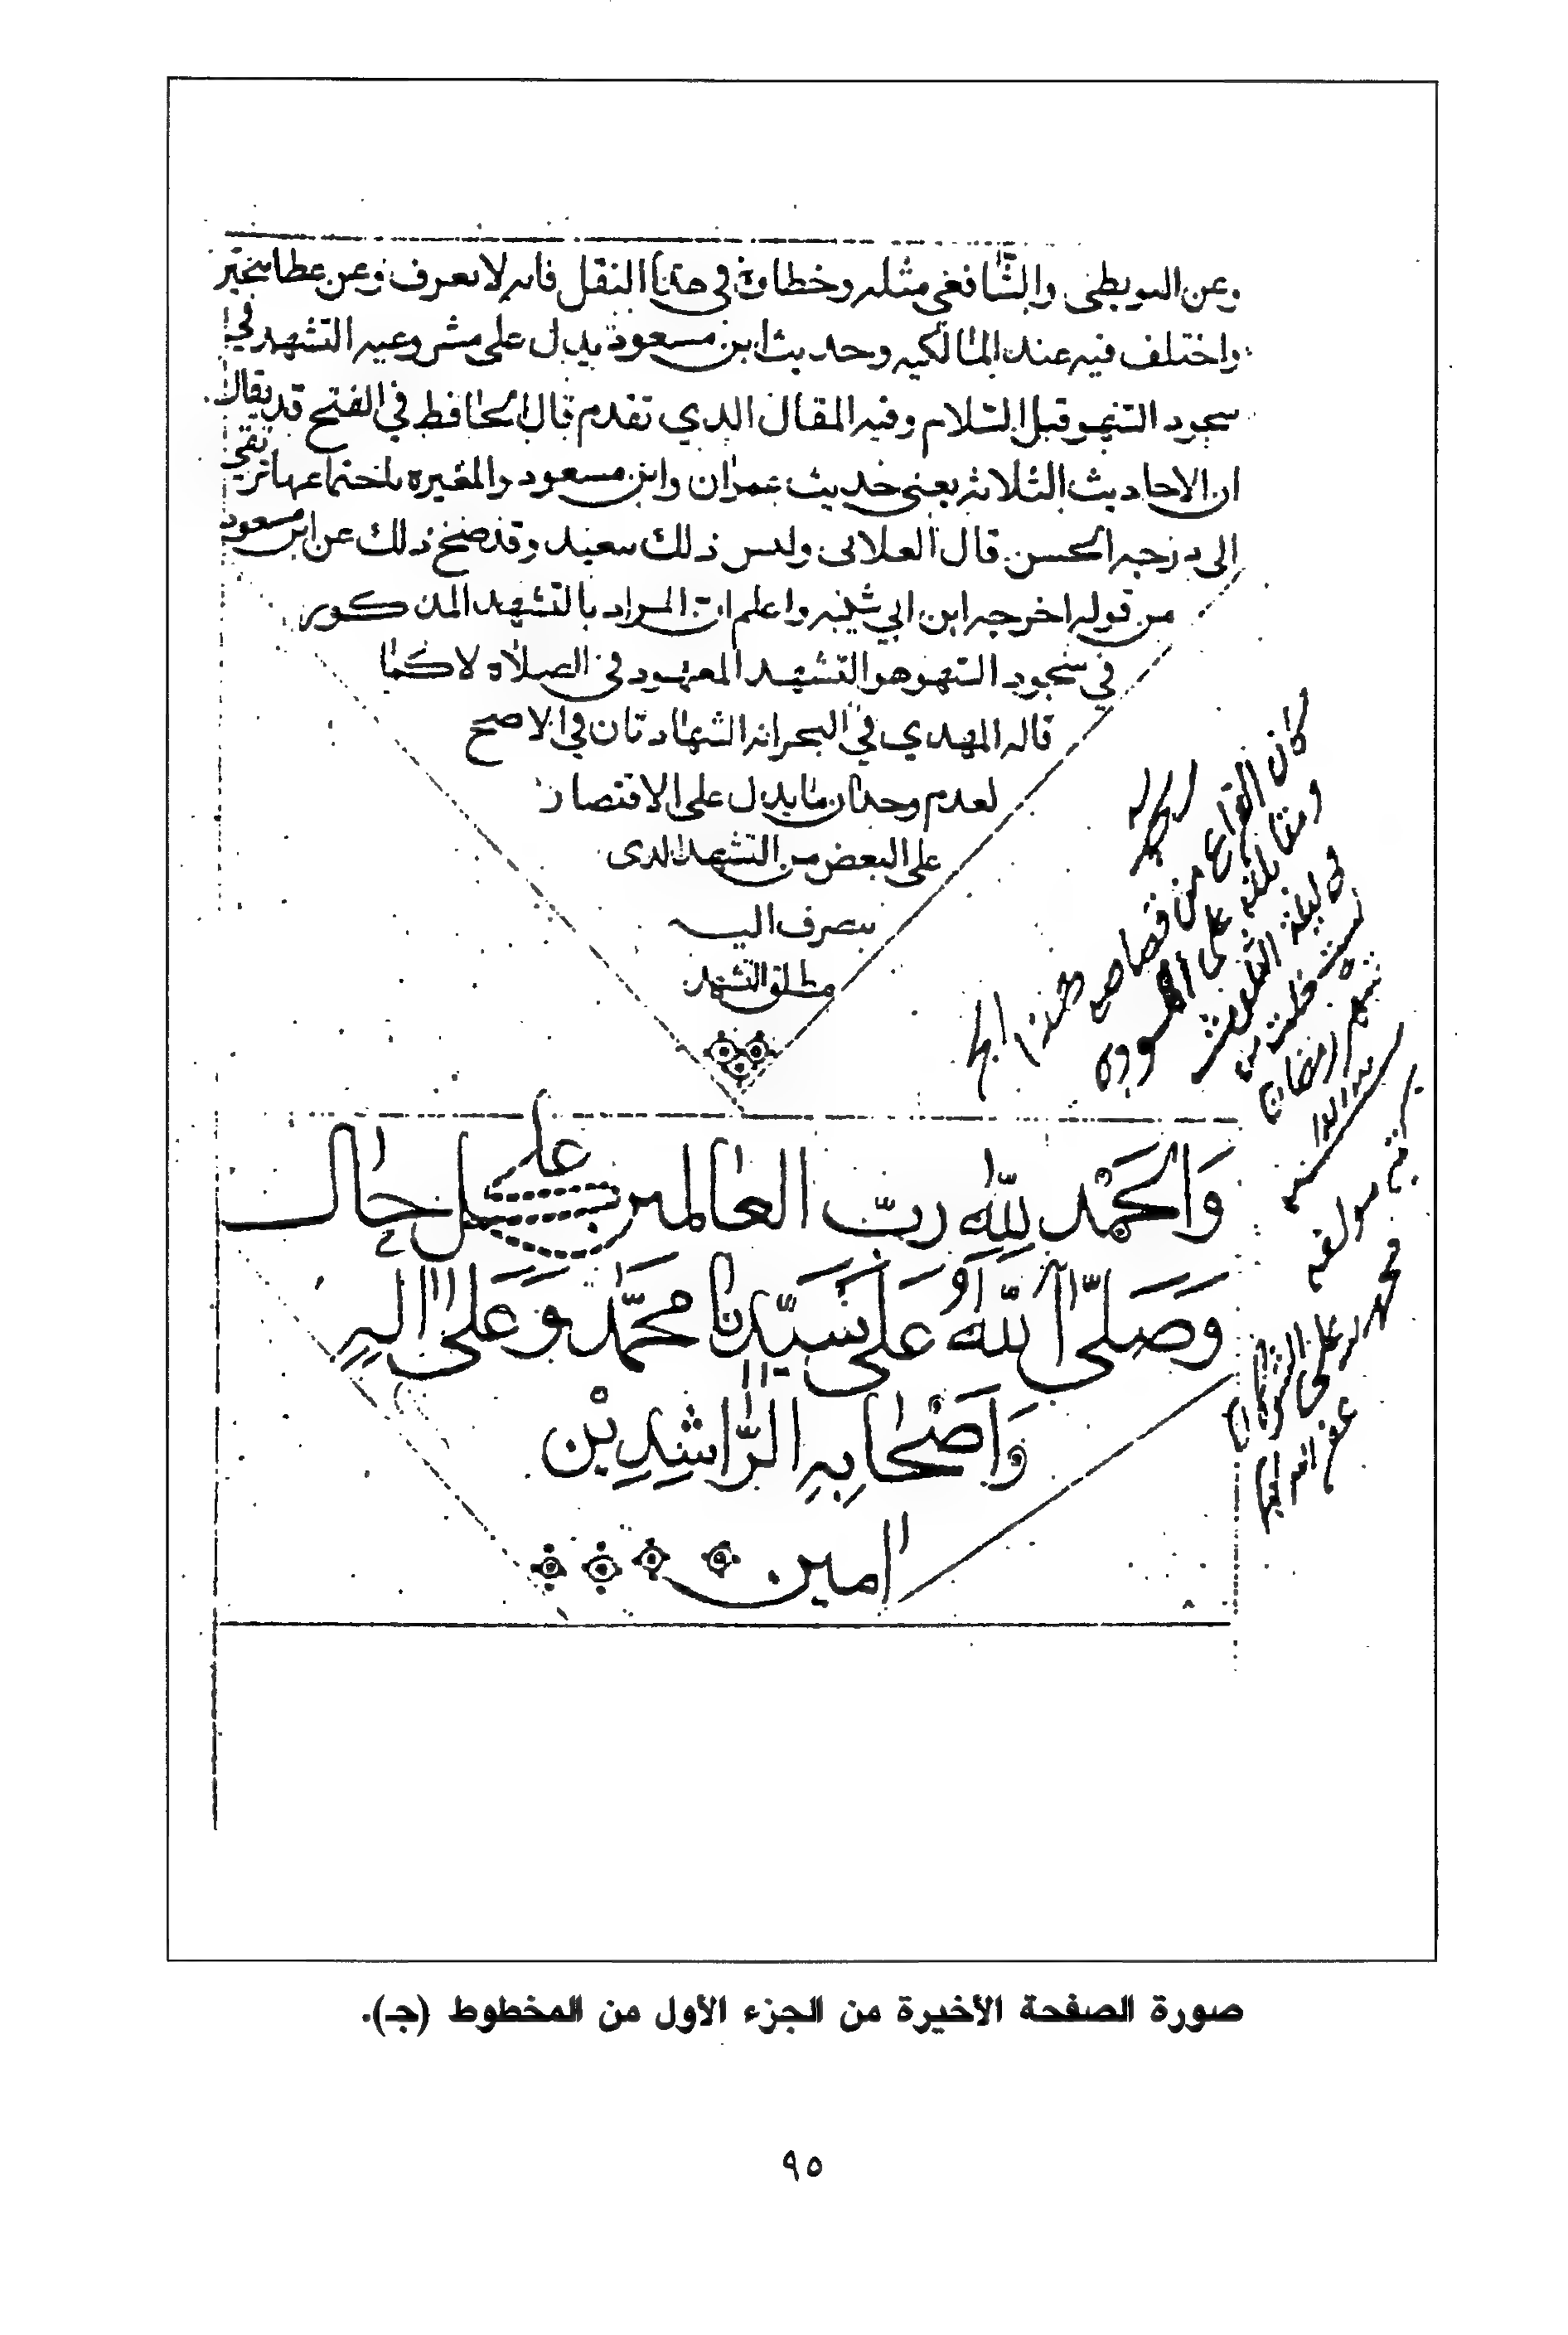 وعن البويطي والشافعي مثله وخطاوه في هذا النقل فانه لا يعرف وعن عطا يتخير
واختلف فيه عند المالكيه وحديث ابن مسعود يدل على مشروعيه التشهد في
سجود السهو قبل السلام وفيه المقال الذي تقدم قال الحافظ في الفتح قد يقال
ان الاحاديث الثلاثه يعني حديث عمران وابن مسعود والمغيره باجتماعها ترتقي
الى درجه الحسن قال العلائي وليس ذلك ببعيد وقد صح ذلك عن ابن مسعود
من قوله اخرجه ابن ابي شيبه واعلم ان المراد بالتشهد المذكور
في سجود السهو هو التشهد المعهود في الصلاه لا كما
قاله المهدي في البحر انه الشهادتان في الاصح
لعدم وجدان ما يدل على الاقتصار
على البعض من التشهد الذي
ينصرف اليه
مطلق التشهد
وَالحَمْد لِلّهِ رَبّ العالمين على كل حال
وَصَلّى اللّهُ عَلَى سَيّدِنا محمّد وَعَلى الِهِ
وَاصْحَابِهِ الرَّاشِدِيْن
امين
الحمد لله
كان الفراغ من قصاصه هذا
ومقابلته على
في ليلة الثلوث
شهر رمضان
سنة
مولفه
محمد بن علي الشوكاني
غفر الله لهما
صورة الصفحة الأخيرة من الجزء الأول من المخطوط (جـ).
٩٥